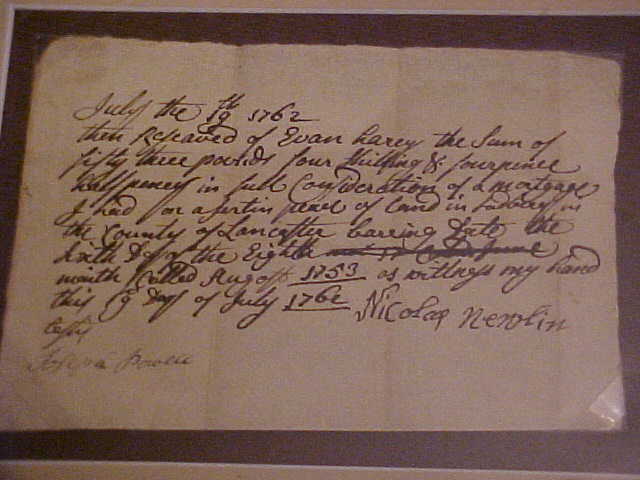 July the 19th 1762
then Receaved of Evan Harey the Sum of
fifty three pounds four Shilling & fourpence
halfpeney in full Consideration of a mortgage
I had on a sertin pece of Land in Sudbery in
the County of Lancaster bearing Date the
Sixth Day of the Eighth
month Called August 1753 as witness my hand
this 19 Day of July 1762 Nicolas Newlin